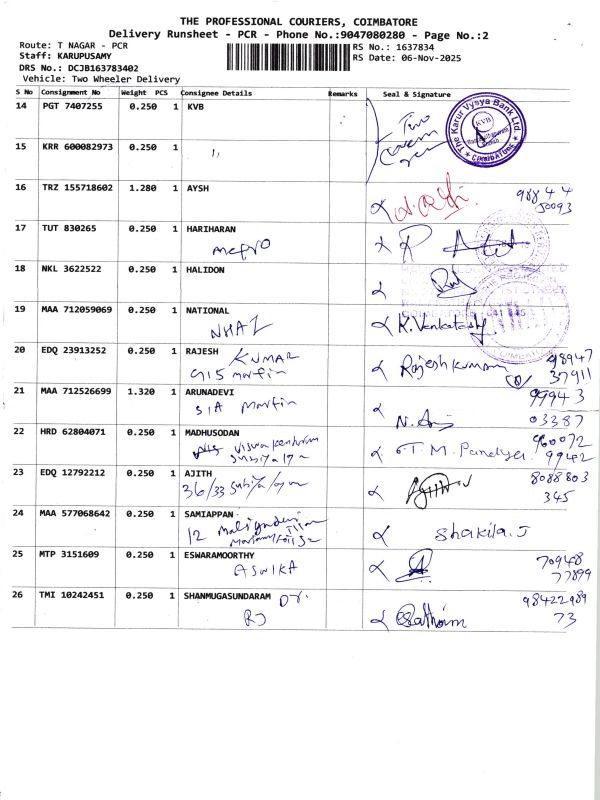 THE PROFESSIONAL COURIERS, COIMBATORE
Delivery Runsheet - PCR - Phone No.:9047080280 - Page No.:2
Route: T NAGAR - PCR
RS No.: 1637834
Staff: KARUPUSAMY
RS Date: 06-Nov-2025
DRS No.: DCJB163783402
Vehicle: Two Wheeler Delivery
S No Consignment No Weight PCS Consignee Details Remarks Seal & Signature
14 PGT 7407255 0.250 1 KVB
The Karur Vysya Bank Ltd.
KVB
COIMBATORE
15 KRR 600082973 0.250 1
16 TRZ 155718602 1.280 1 AYSH
98844
50093
17 TUT 830265 0.250 1 HARIHARAN
mepro
18 NKL 3622522 0.250 1 HALIDON
19 MAA 712059069 0.250 1 NATIONAL
NHAI
K. Venkatash
20 EDQ 23913252 0.250 1 RAJESH
KUMAR
915 martin
Rajeshkumar
98947
37911
21 MAA 712526699 1.320 1 ARUNADEVI
martin
99943
03387
22 HRD 62804071 0.250 1 MADHUSODAN
T. M. Pandya
960072
9942
23 EDQ 12792212 0.250 1 AJITH
36/33
8088803
345
24 MAA 577068642 0.250 1 SAMIAPPAN
12
Shakila.J
25 MTP 3151609 0.250 1 ESWARAMOORTHY
ASWIKA
70948
77899
26 TMI 10242451 0.250 1 SHANMUGASUNDARAM Dr.
98422989
73